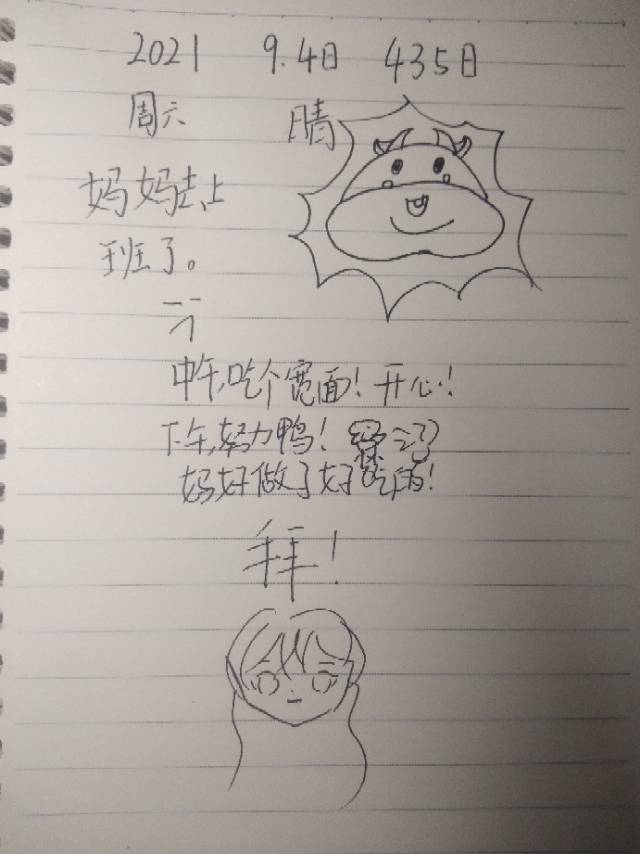 2021 9.4日 435日
周六 晴
妈妈去上
班了。
中午,吃个宽面!开心!
下午,努力鸭!
妈好做了好吃的!
拜!